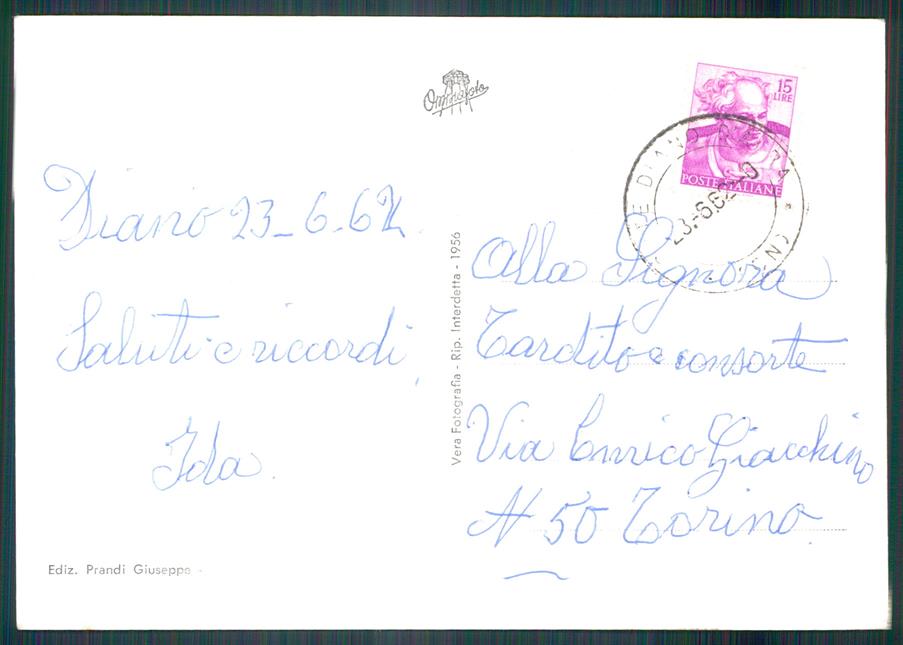 Omniafoto
15
LIRE
POSTE ITALIANE
23.-6.62
Diano 23-6-62
Saluti e riccordi,
Ida.
Vera Fotografia - Rip. Interdetta - 1956
Alla Signora
Tardito e consorte
Via Enrico Giacchino
N 50 Torino.
Ediz. Prandi Giuseppe -